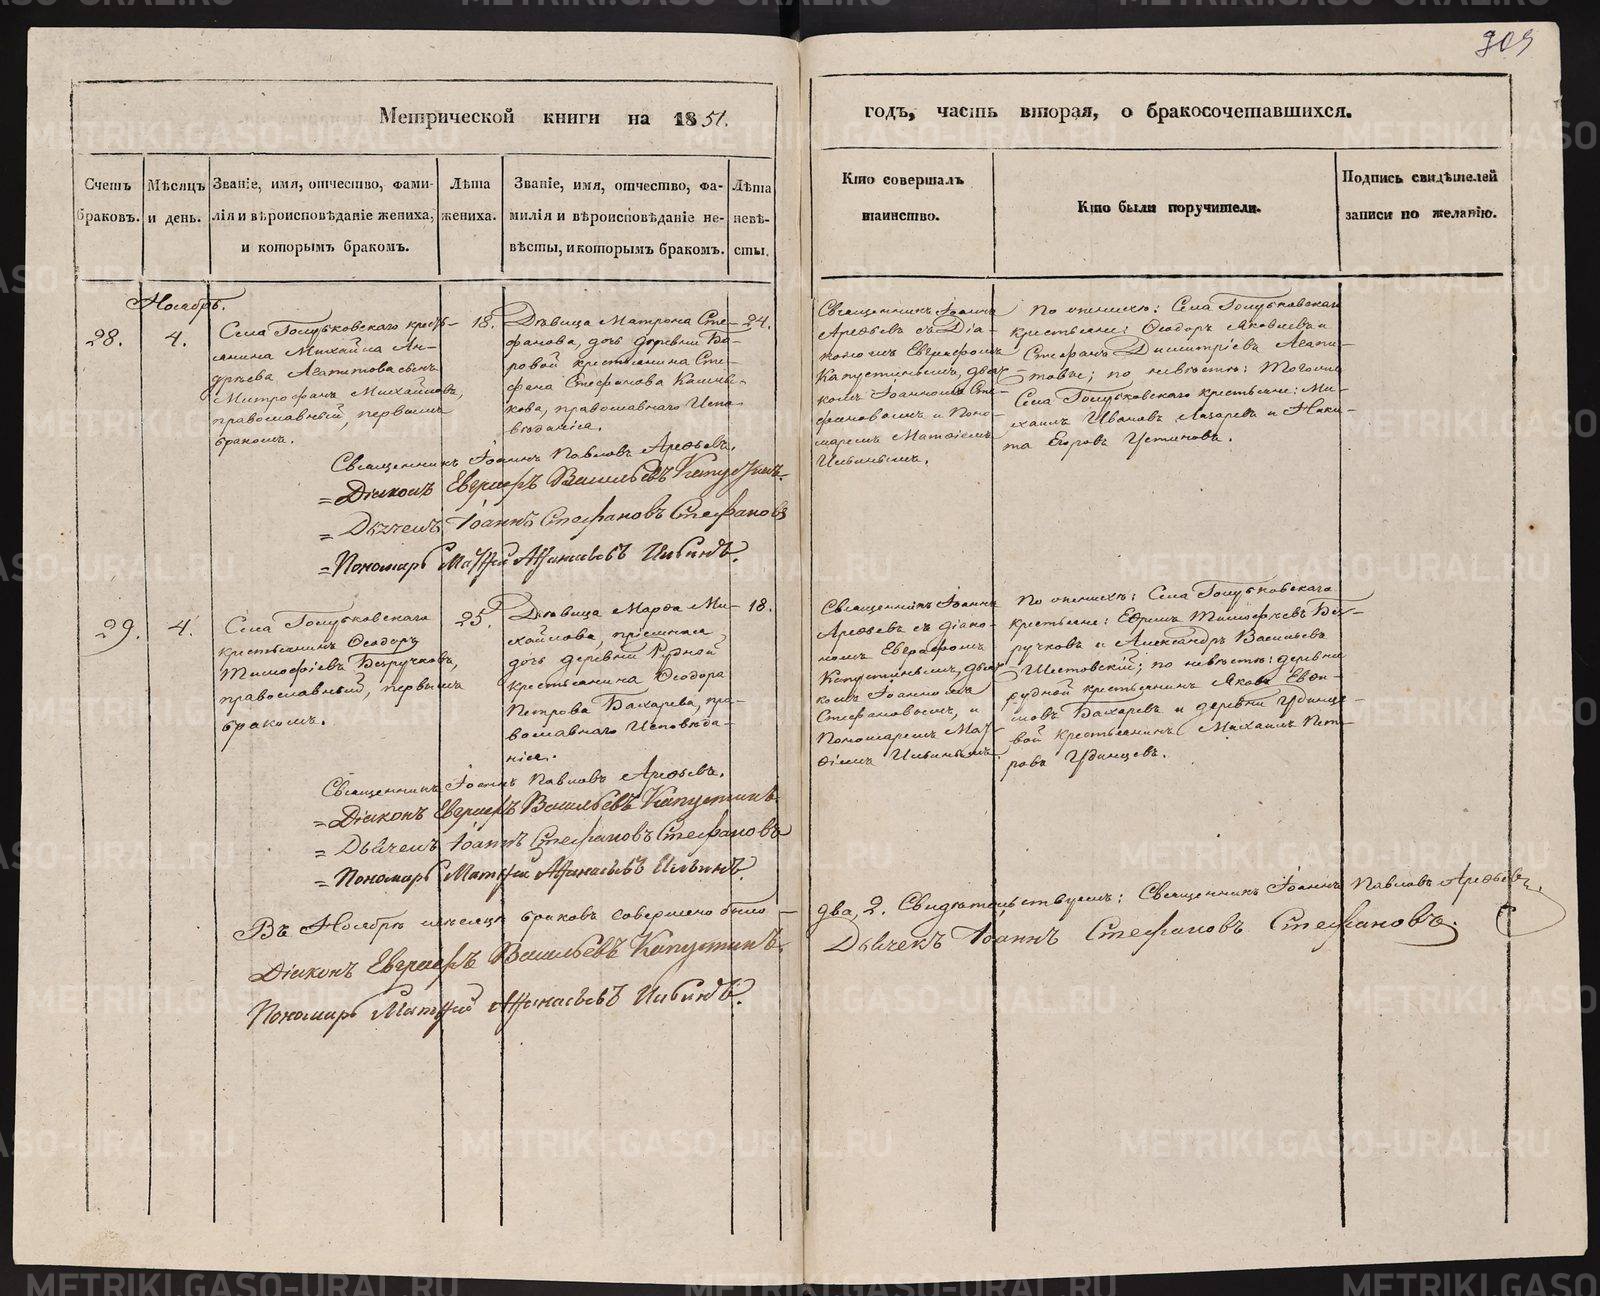 309
Метрической книги на 1851.
годъ, часть вторая, о бракосочетавшихся.
Счетъ браковъ.
Мѣсяцъ и день.
Званіе, имя, отчество, фами-
лія и вѣроисповѣданіе жениха,
и которымъ бракомъ.
Лѣта
жениха.
Званіе, имя, отчество, фа-
милія и вѣроисповѣданіе не-
вѣсты, и которымъ бракомъ.
Лѣта
невѣ-
сты.
Кто совершалъ
таинство.
Кто были поручители.
Подпись свидѣтелей
записи по желанію.
Ноябрь.
28.
4.
Села Голубковскаго кресть-
янина Михаила Ан-
дрѣева Агапитова сынъ
Митрофанъ Михайловъ,
православный, первымъ
бракомъ.
18.
Дѣвица Матрона Сте-
фанова, дочь деревни Бо-
ровой крестьянина Сте-
фана Стефанова
кова, православнаго Испо-
вѣданія.
24.
Священникъ Іоаннъ
Арефьевъ съ Діа-
кономъ Евграфомъ
Капустинымъ, дьяч-
комъ Іоанномъ Сте-
фановымъ и Поно-
маремъ Матфіемъ
Ильинымъ.
По женихѣ: Села Голубковскаго
крестьяне: Ѳеодоръ Яковлевъ и
Стефанъ Димитріевъ Агапи-
товы; по невѣстѣ: Тогоже
Села Голубковскаго крестьяне: Ми-
хаилъ Ивановъ Лазаревъ и Ники-
та Егоровъ Устиновъ.
Священникъ Іоаннъ Павловъ Арефьевъ.
=Діаконъ Евграфъ Васильевъ Капустинъ.
= Дьячекъ Іоаннъ Стефановъ Стефановъ
=Пономарь Матфій Афанасьевъ Ильинъ.
29.
4.
Села Голубковскаго
крестьянинъ Ѳеодоръ
Тимофіевъ Безручковъ,
православный, первымъ
бракомъ.
25.
Дѣвица Марѳа Ми-
хайлова, пріемная
дочь деревни Рудной
крестьянина Ѳеодора
Петрова Бахарева, пра-
вославнаго Исповѣда-
нія.
18.
Священникъ Іоаннъ
Арефьевъ съ діако-
номъ Евграфомъ
Капустинымъ, дьяч-
комъ Іоанномъ
Стефановымъ, и
Пономаремъ Мат-
ѳіемъ Ильинымъ.
По женихѣ: Села Голубковскаго
крестьяне: Ефимъ Тимофѣевъ Без-
ручковъ и Александръ Васильевъ
Шестовскій; по невѣстѣ: деревни
рудной крестьянинъ Яковъ Евфи-
мовъ Бахаревъ и деревни Удинце-
вой крестьянинъ Михаилъ Пет-
ровъ Удинцевъ.
Священникъ Іоаннъ Павловъ Арефьевъ.
=Діаконъ Евграфъ Васильевъ Капустинъ.
= Дьячекъ Іоаннъ Стефановъ Стефановъ
=Пономарь Матфій Афанасьевъ Ильинъ.
Въ Ноябрѣ мѣсяцѣ браковъ совершено было
два, 2. Свидѣтельствуемъ: Священникъ Іоаннъ Павловъ Арефьевъ.
Діаконъ Евграфъ Васильевъ Капустинъ.
Дьячекъ Іоаннъ Стефановъ Стефановъ.
Пономарь Матфій Афанасьевъ Ильинъ.
METRIKI.GASO-URAL.RU